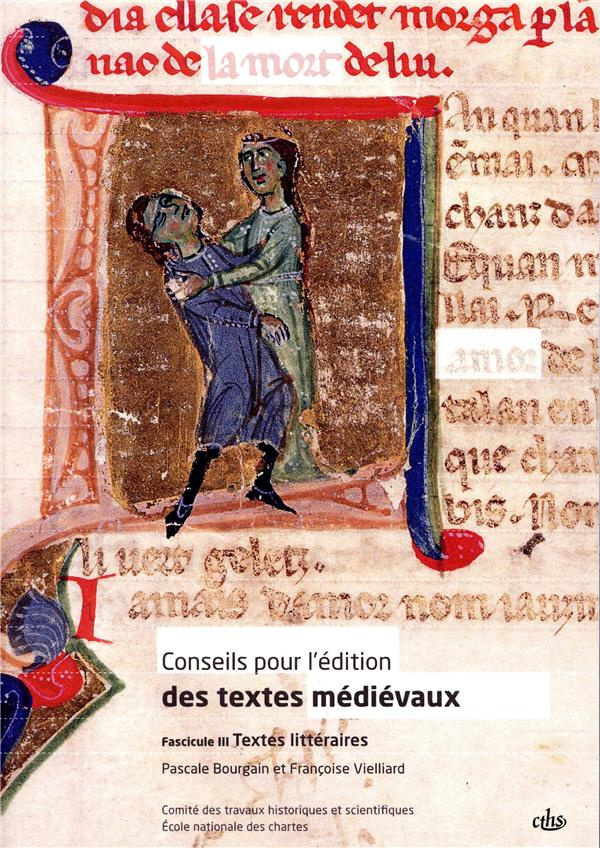 dia ella se rendet morga p la
nao de la mort de lui.
An quan
chan: da
Equan m
amor de l
talan en
que chan
vis. Non
li uert
amais damor nom
Conseils pour l'édition
des textes médiévaux
Fascicule III Textes littéraires
Pascale Bourgain et Françoise Vielliard
Comité des travaux historiques et scientifiques
École nationale des chartes
cths